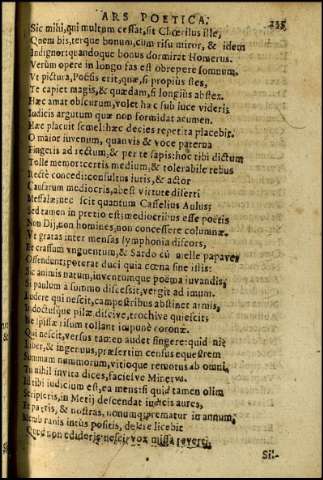 ARS POETICA. 235
Sic mihi, qui multum cessat, sit Chœrilus ille,
Quem bis, terque bonum, cum risu miror, & idem
Indignor: quandoque bonus dormitat Homerus.
Verùm opere in longo fas est obrepere somnum.
Vt pictura, Poësis erit, quæ, si propius stes,
Te capiet magis, & quædam, si longiùs abstes.
Hæc amat obscurum, volet hæc sub luce videri,
Iudicis argutum quæ non formidat acumen.
Hæc placuit semel: hæc decies repetita placebit.
O maior iuvenum, quamvis & voce paterna
Fingeris ad rectum, & per te sapis: hoc tibi dictum
Tolle memor: certis medium, & tolerabile rebus
Rectè concedi: consultus iuris, & actor
Causarum mediocris, abest virtute diserti
Messalæ; nec scit quantum Casselius Aulus;
Sed tamen in pretio est: mediocribus esse poetis
Non Dij, non homines, non concessere columnæ.
Vt gratas inter mensas symphonia discors,
Et crassum vnguentum, & Sardo cū melle papaver
Offendunt; poterat duci quia cœna sine istis:
Sic animis natum, inventumque poëma iuvandis,
Si paulum à summo discessit, vergit ad imum.
Ludere qui nescit, campestribus abstinet armis,
Indoctusque pilæ, discive, trochive quiescit;
Ne spissæ risum tollant impunè coronæ.
Qui nescit, versus tamen audet fingere: quid ni?
Liber, & ingenuus, præsertim census equestrem
Summam nummorum, vitioque remotus ab omni.
Tu nihil invita dices, faciesve Minerva.
Id tibi iudicium est, ea mens: si quid tamen olim
Scripseris, in Metij descendat iudicis aures,
Et patris, & nostras, nonumq; prematur in annum,
Membranis intus positis, delere licebit
Quod non edideris: nescit vox missa reverti.
Sil-